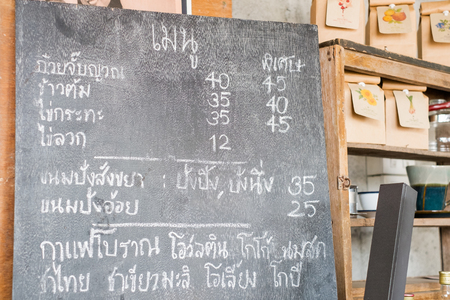 เมนู พิเศษ
ก๋วยจั๊บญวน 40 45
ข้าวต้ม 35 40
ไข่กระทะ 35 45
ไข่ลวก 12
ขนมปังสังขยา : ปังปิ้ง, ปังนึ่ง 35
ขนมปังจ๋อย 25
กาแฟโบราณ โอวัลติน โกโก้ นมสด
ชาไทย ชาเขียวมะลิ โอเลี้ยง โกปี๊